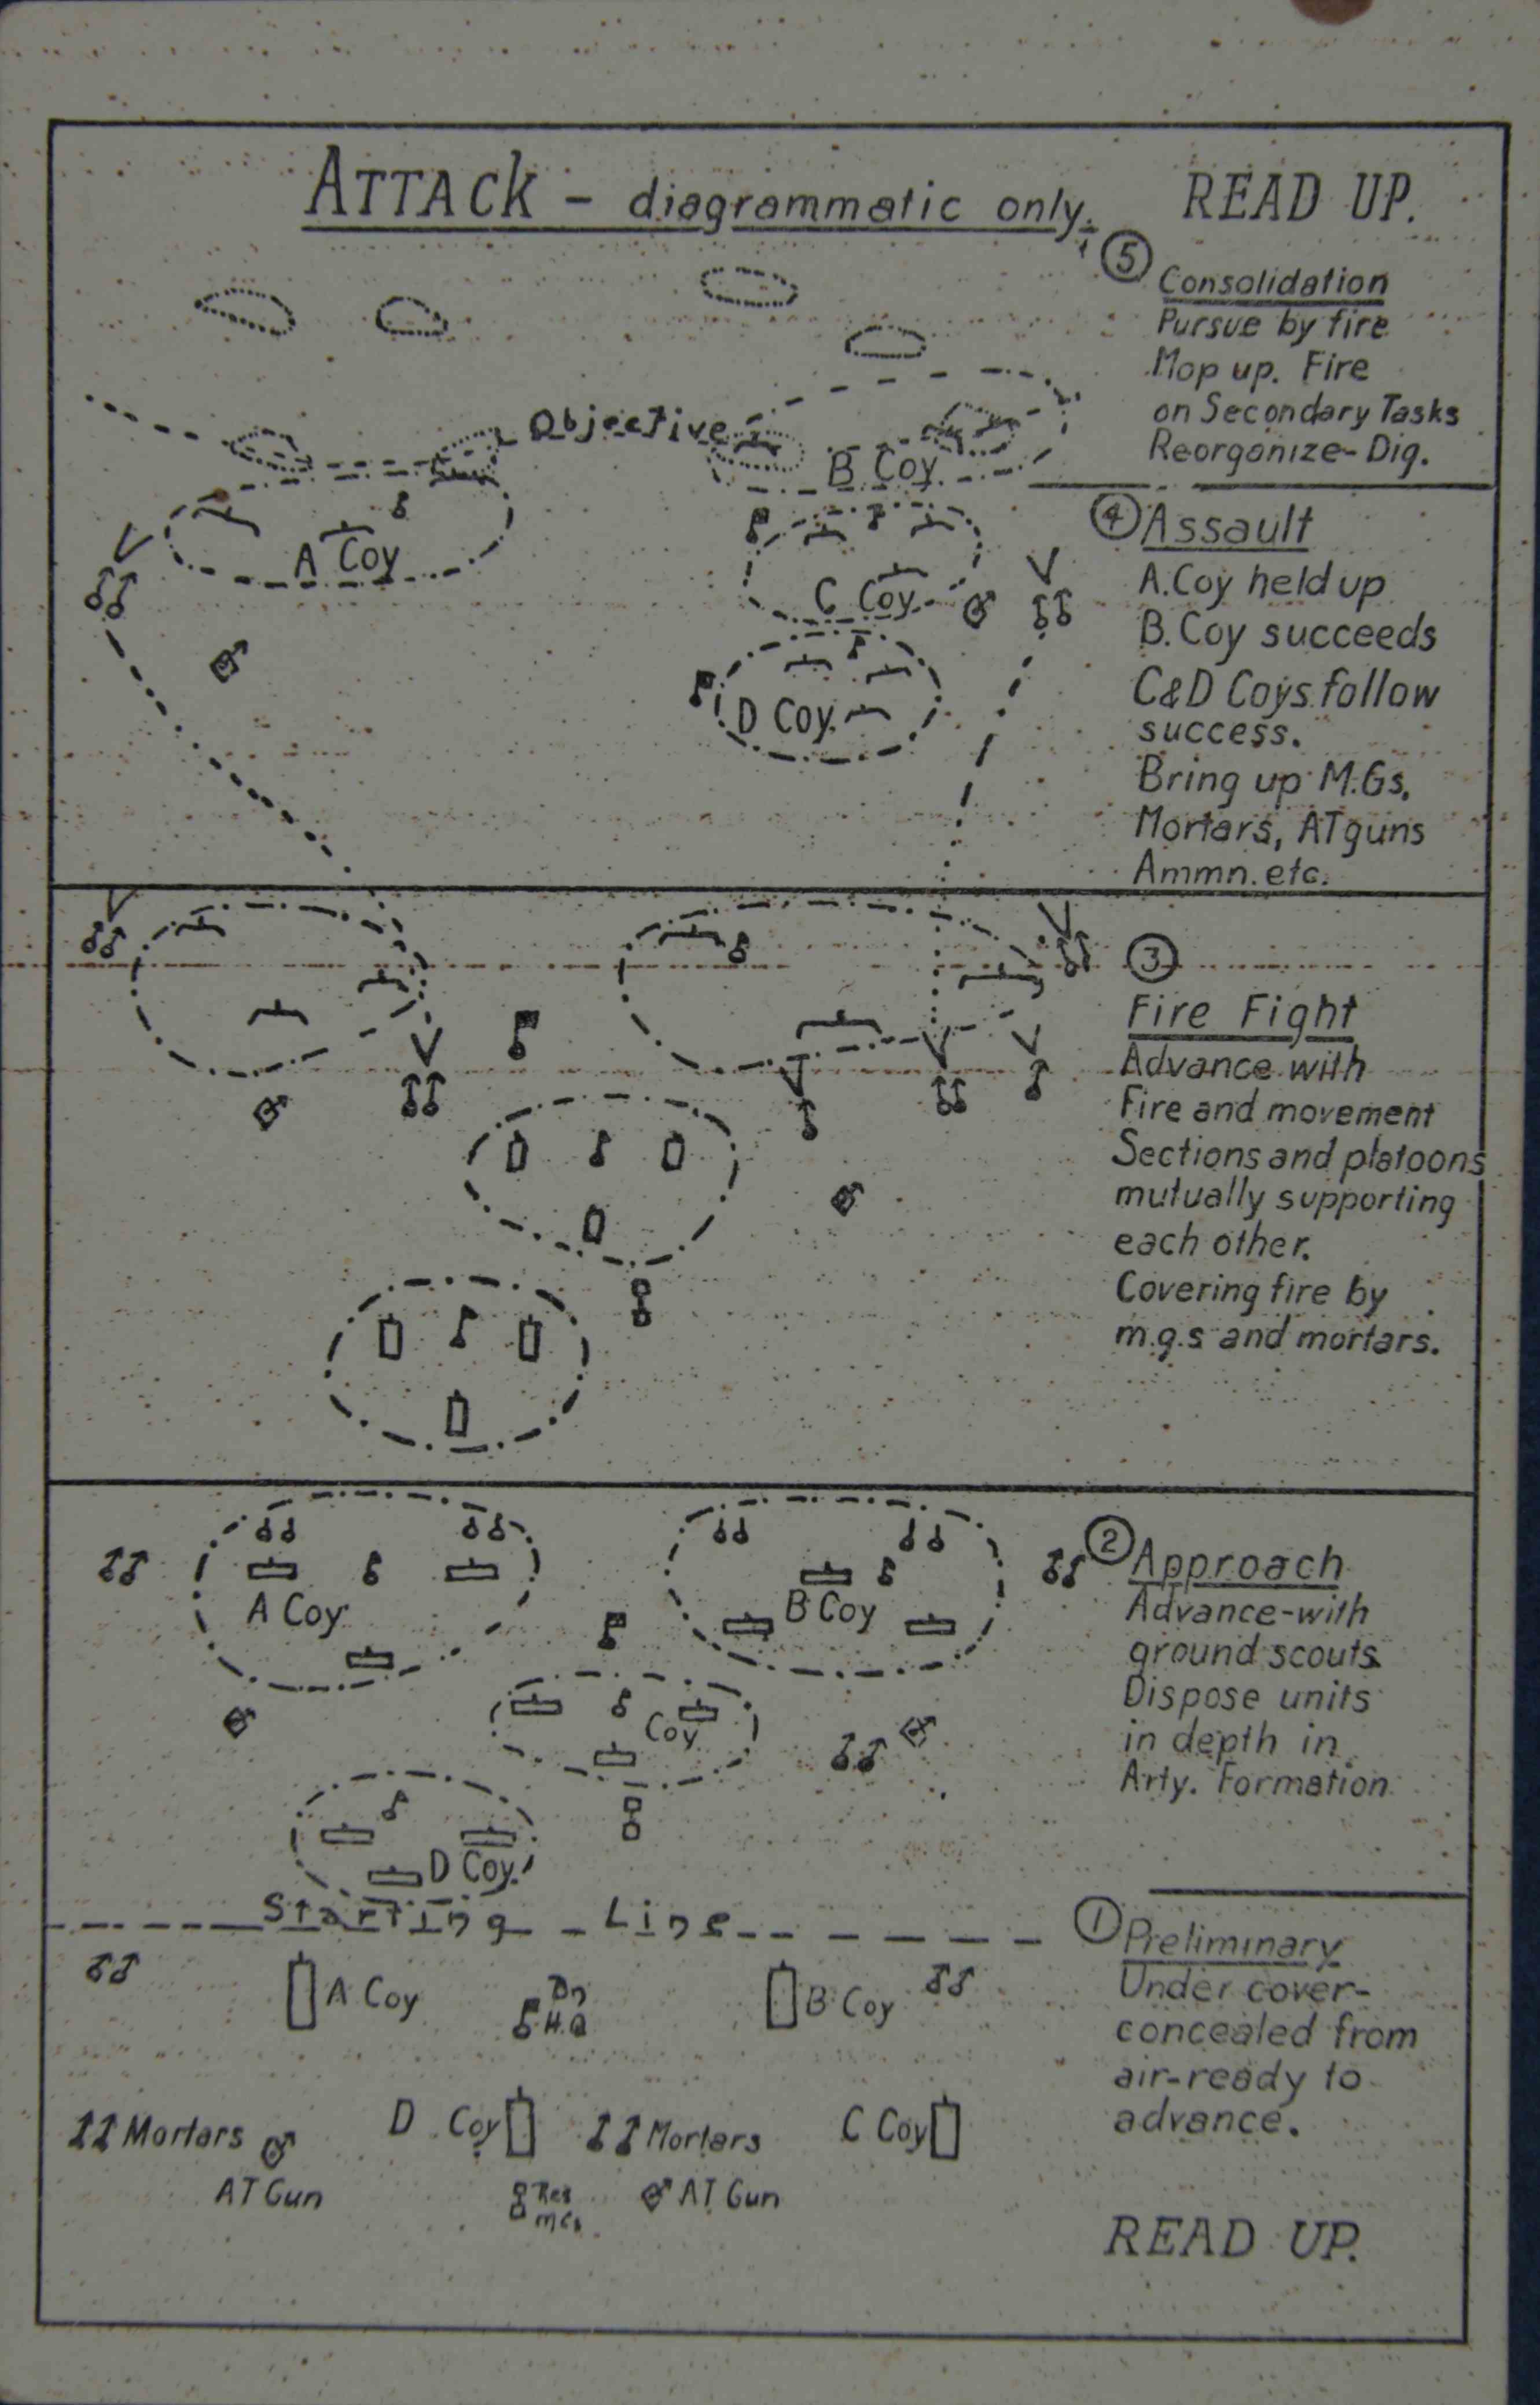 ATTACK - diagrammatic only.
READ UP.
5
Consolidation
Pursue by fire
Mop up. Fire
on Secondary Tasks
Reorganize- Dig.
Objective
B Coy.
A Coy
C Coy.
D Coy.
4 Assault
A. Coy held up
B. Coy succeeds
C & D Coys. follow
success.
Bring up M.Gs.
Mortars, AT guns
Ammn. etc.
3
Fire Fight
Advance with
Fire and movement
Sections and platoons
mutually supporting
each other.
Covering fire by
m.g.s and mortars.
A Coy
B Coy
Coy
D Coy.
2 Approach
Advance-with
ground scouts
Dispose units
in depth in
Arty. Formation
Starting Line
1 Preliminary
Under cover-
concealed from
air-ready to
advance.
A Coy
Bn
H.Q
B Coy
Mortars
AT Gun
D Coy
Mortars
C Coy
Res
MGs.
AT Gun
READ UP.